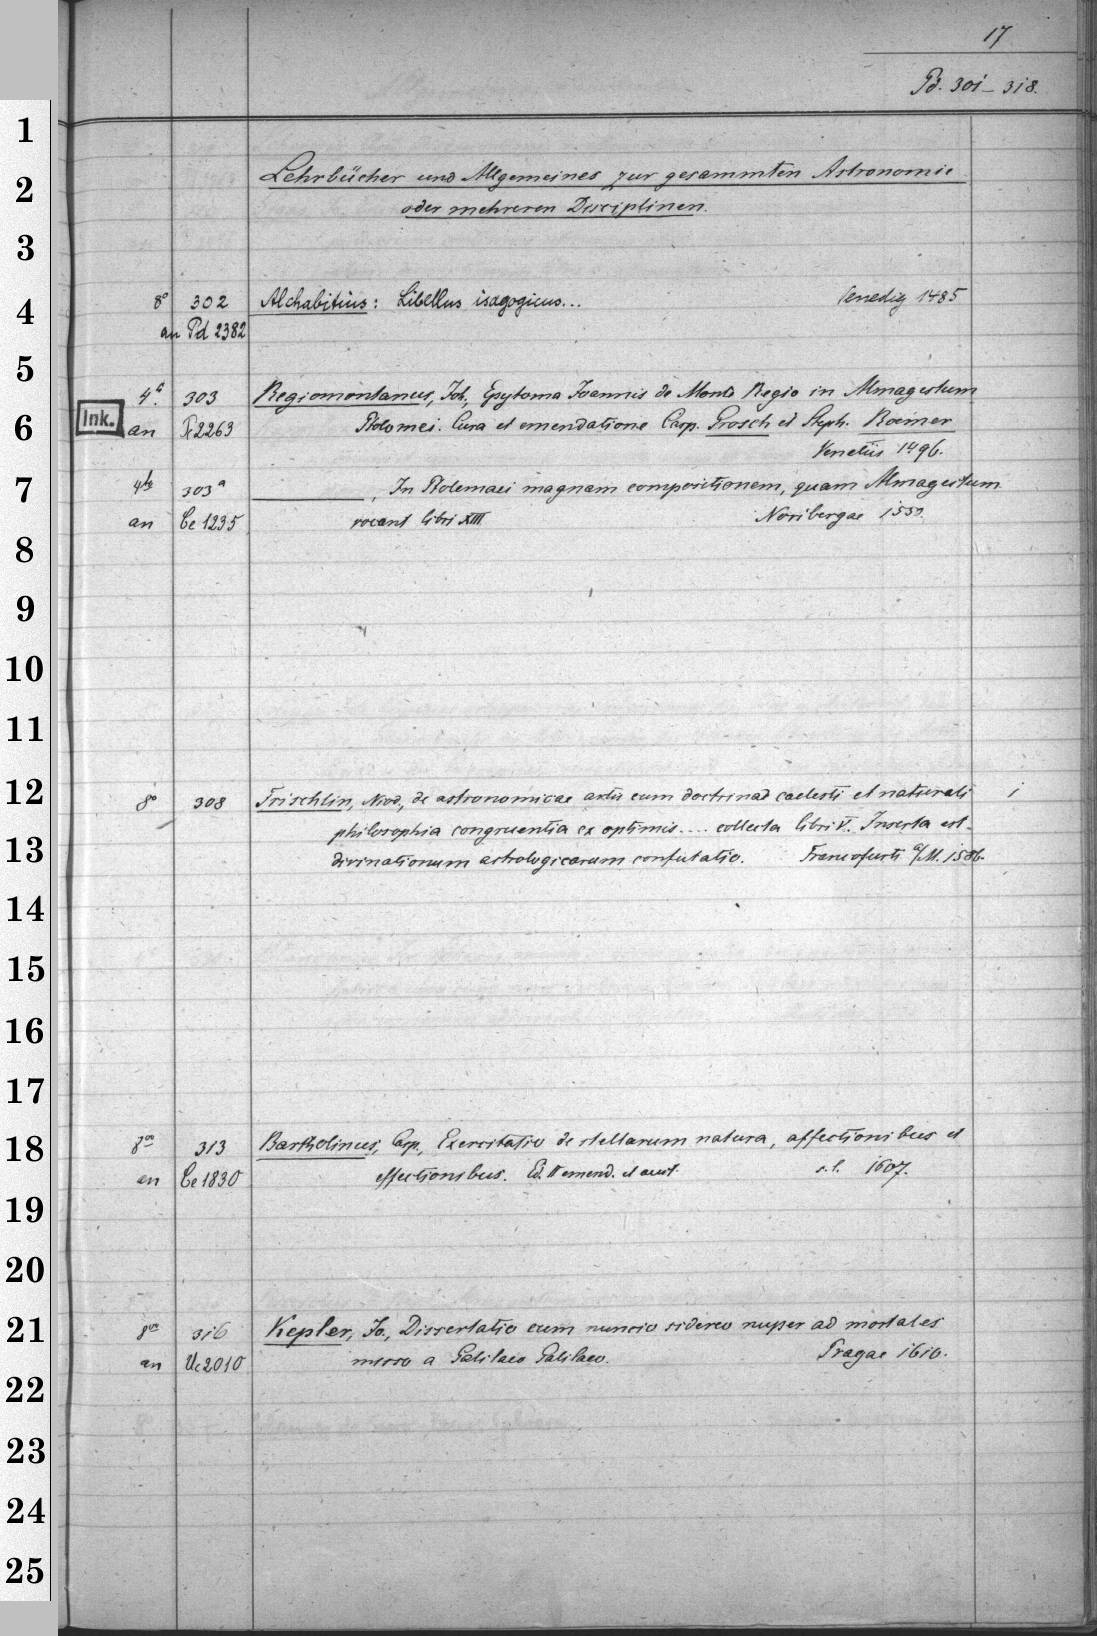 17
Pd. 301 - 318.
1
Lehrbücher und Allgemeines zur gesammten Astronomie
2
oder mehreren Disciplinen.
3
8° 302 Alchabitius: Libellus isagogicus... Venedig 1485
4
an Pd 2382
5
4° 303 Regiomontanus, Joh., Epytoma Joannis de Monte Regio in Almagestum
Ink.
6 an 2263 Ptolomei. Cura et emendatione Casp. Grosch et Steph. Roemer
Venetiis 1496.
7 4to 303a ________, In Ptolemaei magnam compositionem, quam Almagestum
an Ce 1235 vocant libri XIII Noribergae 1550.
8
9
10
11
12 8° 308 Frischlin, Nicod., de astronomicae artis cum doctrina coelesti et naturali 1
philosophia congruentia ex optimis .... collecta libri V. Inserta est
13 divinationum astrologicarum confutatio. Francofurti a/M. 1586.
14
15
16
17
18 8vo 313 Bartholinus, Casp., Exercitatio de stellarum natura, affectionibus et
an Ce 1830 effectionibus. Ed. II emend. et auct. s. l. 1607.
19
20
21 8vo 316 Kepler, Jo., Dissertatio cum nuncio sidereo nuper ad mortales
an Uc 2010 misso a Galilaeo Galilaeo. Pragae 1610.
22
23
24
25